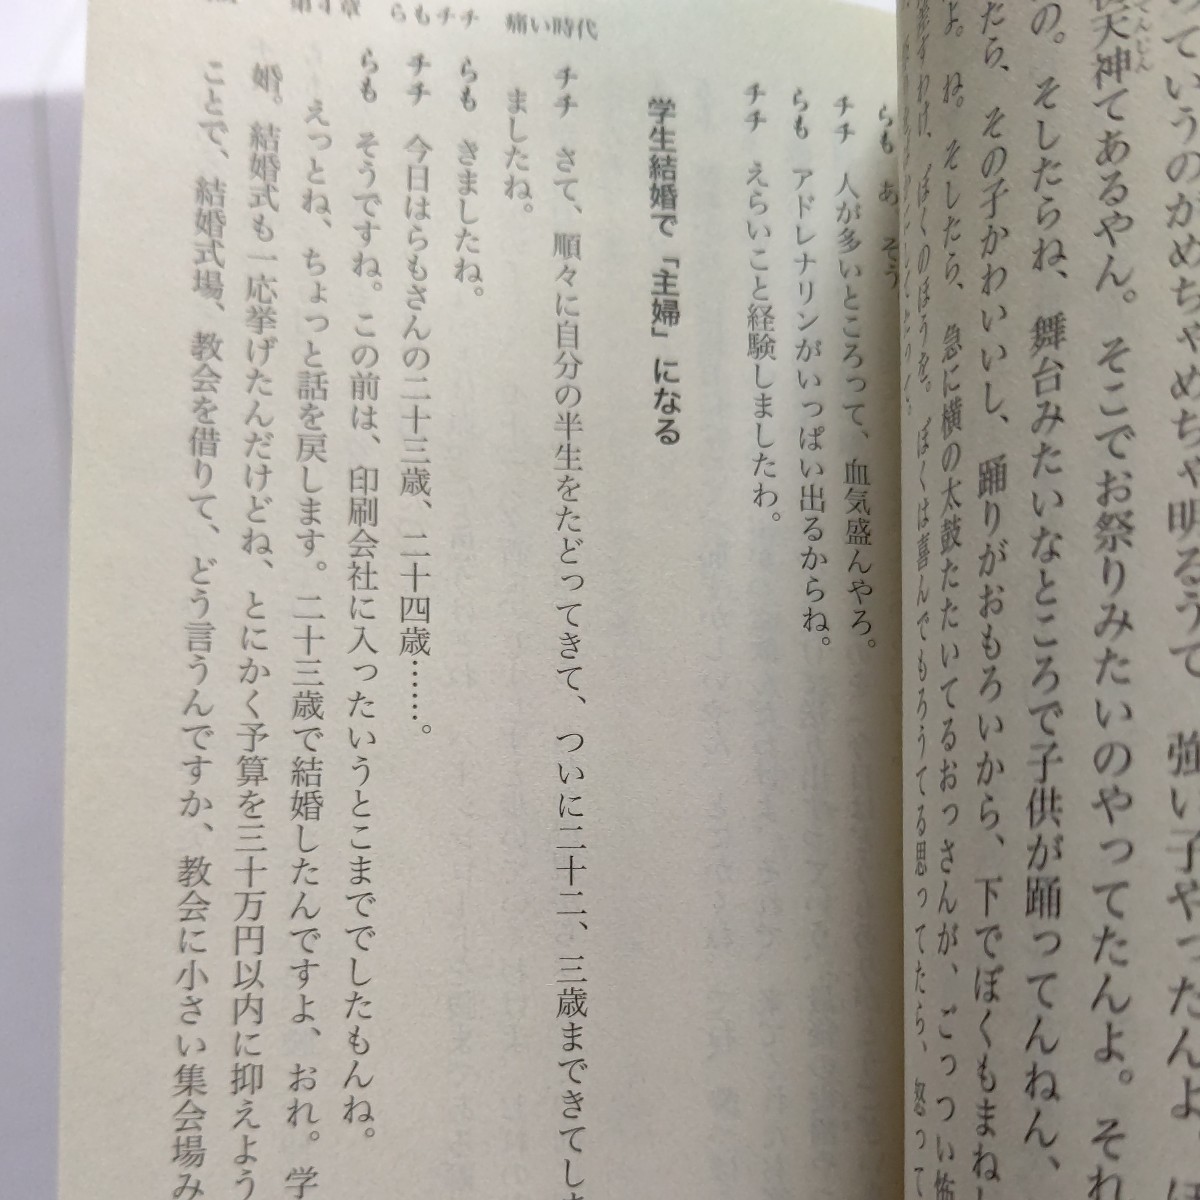 第4章　らもチチ　痛い時代
っていうのがめちゃめちゃ明るうて、強い子やったんよ。
天神てあるやん。そこでお祭りみたいのやってたんよ。それ
の。そしたらね、舞台みたいなところで子供が踊ってんねん、
たら、その子かわいいし、踊りがおもろいから、下でぼくもまね
よ。ね。そしたら、急に横の太鼓たたいてるおっさんが、ごっつい怖
わけ、ぼくのほうを。ぼくは喜んでもろうてる思ってたら、怒って
らも　あ、そう
チチ　人が多いところって、血気盛んやろ。
らも　アドレナリンがいっぱい出るからね。
チチ　えらいこと経験しましたわ。
学生結婚で「主婦」になる
チチ　さて、順々に自分の半生をたどってきて、ついに二十二、三歳まできてしま
ましたね。
らも　きましたね。
チチ　今日はらもさんの二十三歳、二十四歳……。
らも　そうですね。この前は、印刷会社に入ったいうとこまででしたもんね。
えっとね、ちょっと話を戻します。二十三歳で結婚したんですよ、おれ。学
婚。結婚式も一応挙げたんだけどね、とにかく予算を三十万円以内に抑えよう
ことで、結婚式場、教会を借りて、どう言うんですか、教会に小さい集会場み